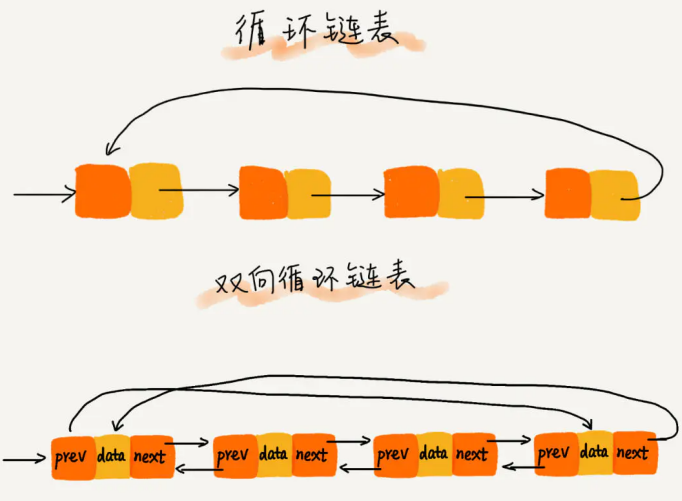 循环链表
双向循环链表
prev data next prev data next prev data next prev data next